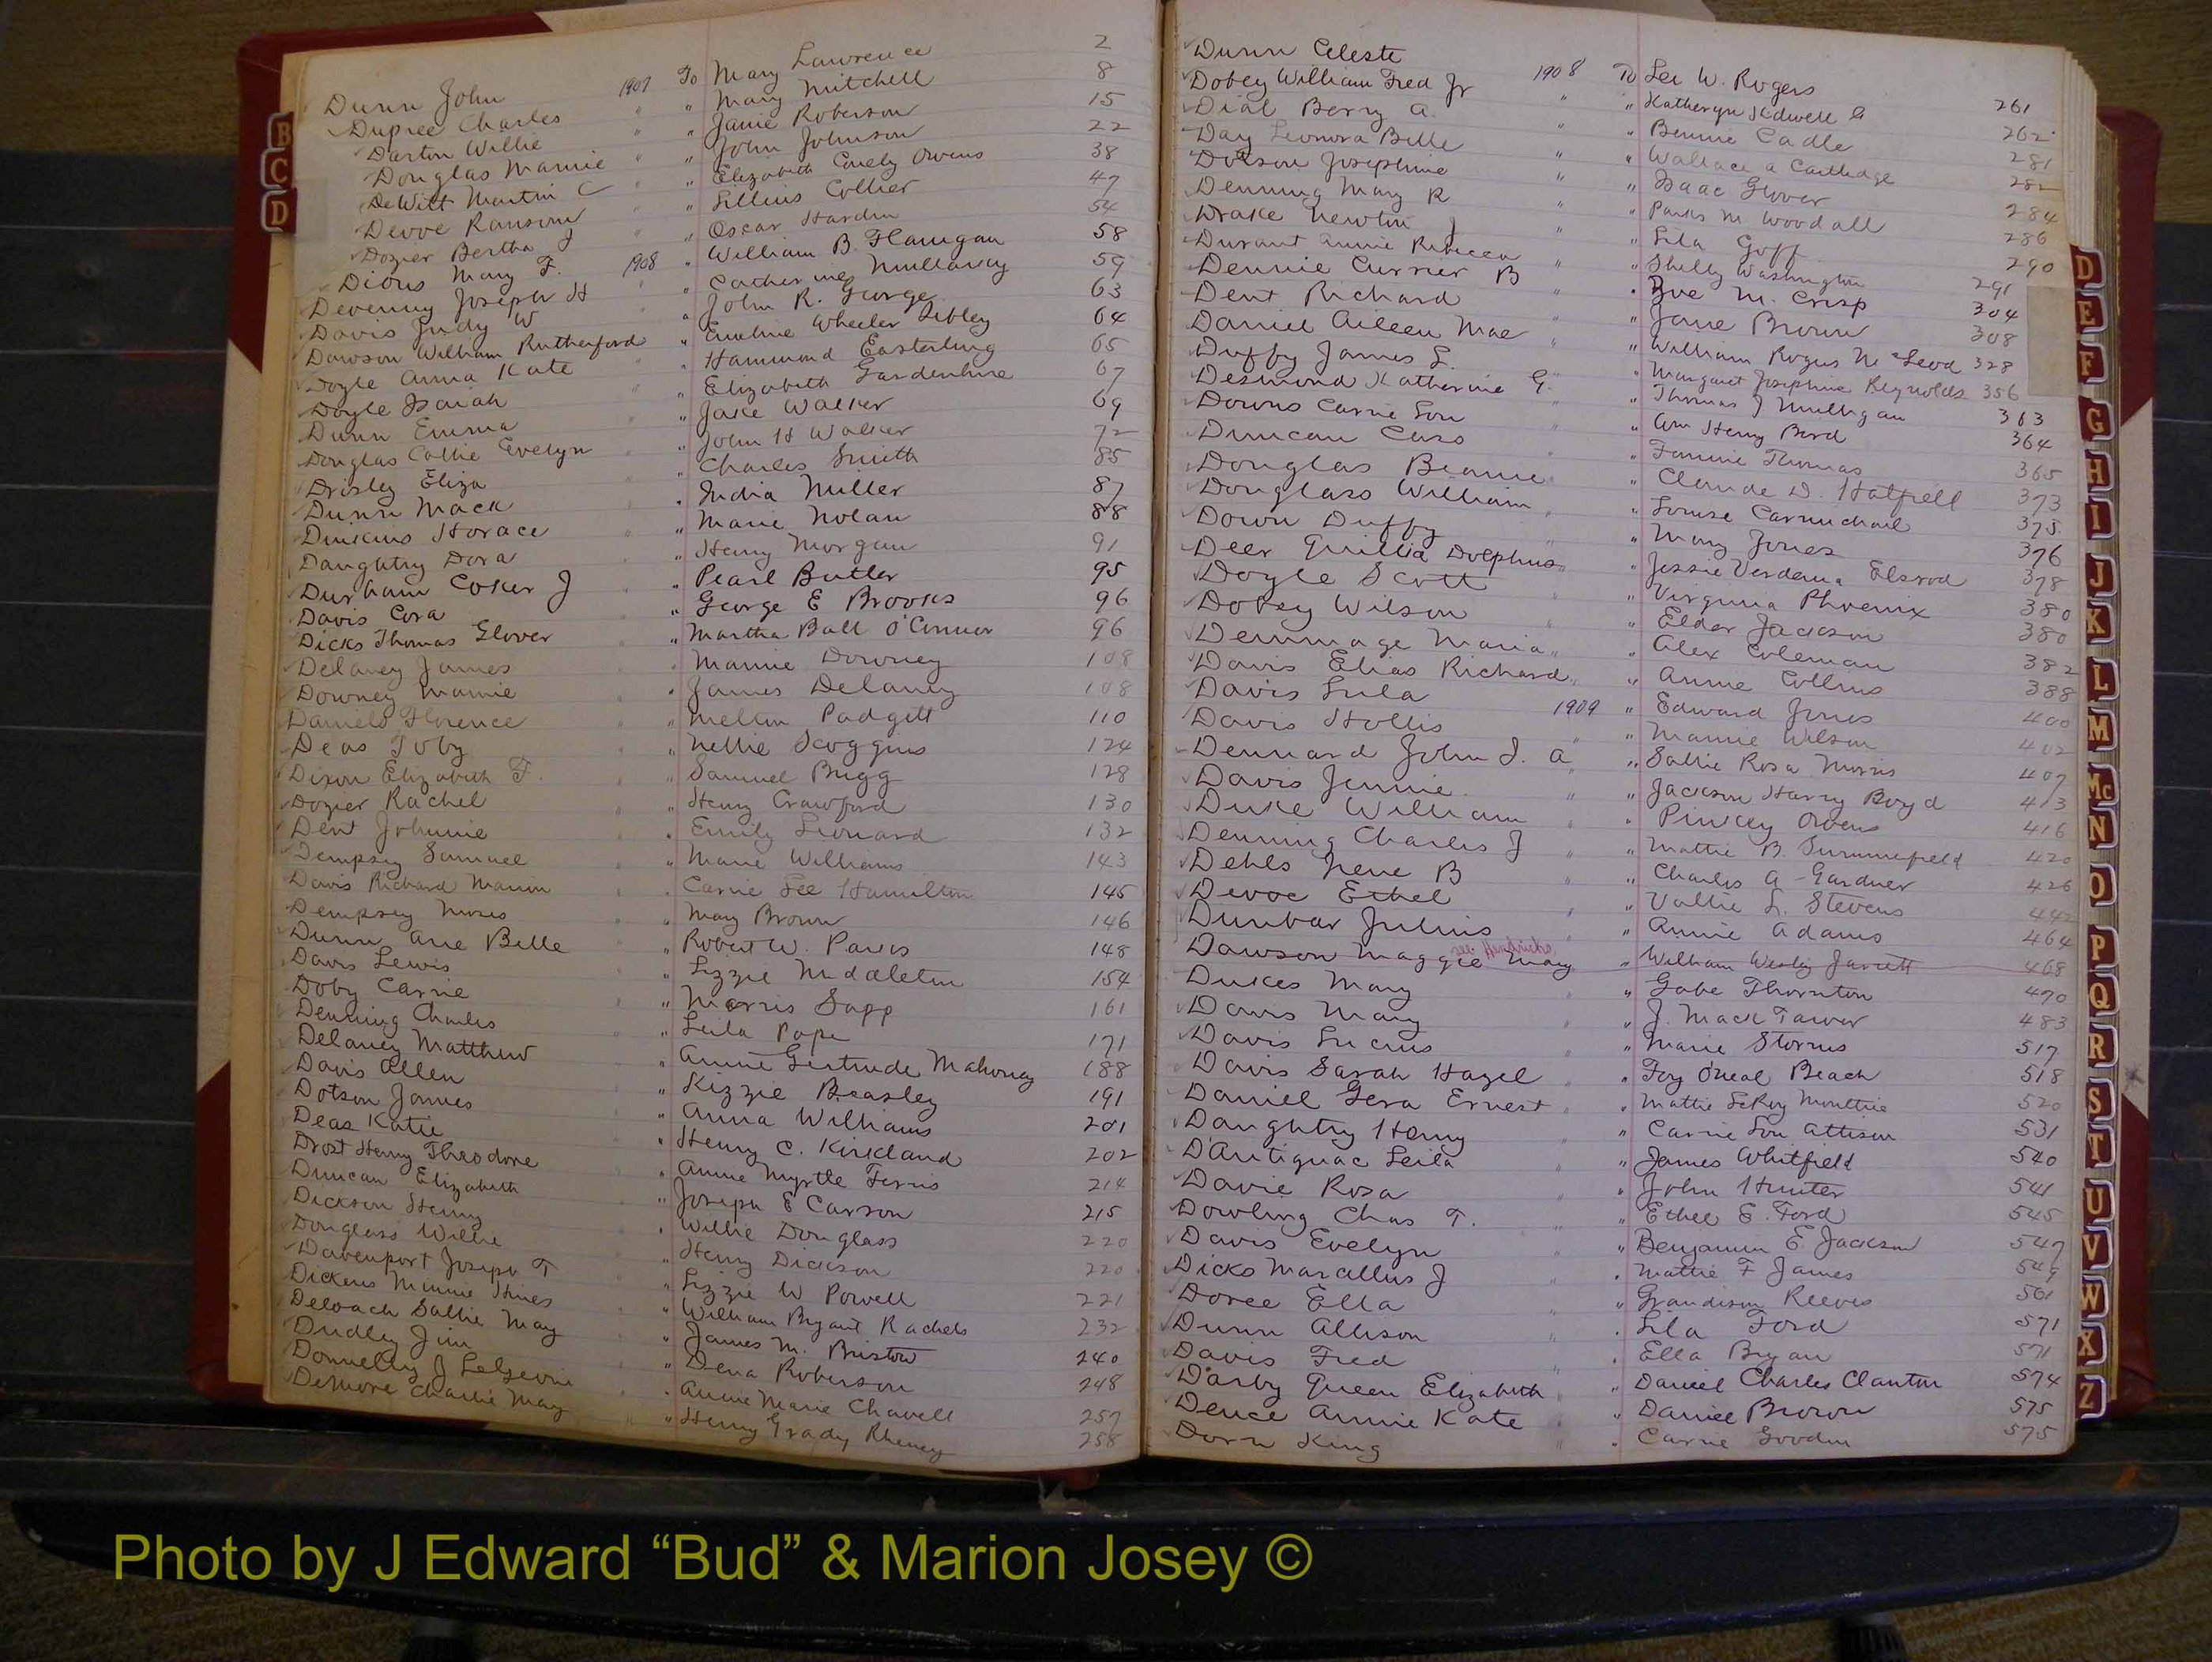 Dunn John 1907 To Mary Lawrence 2
Dupree Charles " " Mary Mitchell 8
Darton Willie " " Janie Roberson 15
Douglas Mamie " " John Johnson 22
DeWitt Martin C " " Elizabeth Owens 38
Devoe Ransom " " Lillius Collier 47
Dozier Bertha J " " Oscar Hardin 54
Dious Mary F. 1908 " William B. Flanigan 58
Devenny Joseph H " " Catherine Mullarky 59
Davis Judy W " " John R. George 63
Dawson William Rutherford " Emeline Wheeler Sibley 64
Doyle Anna Kate " " Hammond Easterling 65
Doyle Isaiah " " Elizabeth Gardenhire 67
Dunn Emma " " Jake Walker 69
Douglas Collie Evelyn " " John H Walker 72
Drisley Eliza " " Charles Smith 85
Dunn Mack " " India Miller 87
Dinkins Horace " " Marie Nolan 88
Daughtry Dora " " Henry Morgan 91
Durham Coker J " " Pearl Butler 95
Davis Cora " " George E Brooks 96
Dicks Thomas Glover " " Martha Ball O'Connor 96
Delaney James " " Mamie Downey 108
Downey Mamie " " James Delaney 108
Daniels Florence " " Mellin Padgett 110
Deas Toby " " Nellie Scoggins 124
Dixon Elizabeth F. " " Samuel Bugg 128
Dozier Rachel " " Henry Crawford 130
Dent Johnnie " " Emily Leonard 132
Dempsey Samuel " " Marie Williams 143
Davis Richard Marion " " Carrie Lee Hamilton 145
Dempsey Moses " " May Brown 146
Dunn Arie Belle " " Robert W. Parks 148
Davis Lewis " " Lizzie Middleton 154
Doby Carrie " " Morris Sapp 161
Denning Charles " " Leila Pope 171
Delaney Matthew " " Annie Gertrude Mahoney 188
Davis Allen " " Kizzie Beasley 191
Dotson James " " Anna Williams 201
Deas Katie " " Henry C. Kirkland 202
Drost Henry Theodore " " Annie Myrtle Ferris 214
Duncan Elizabeth " " Joseph E Carson 215
Dickson Henry " " Willie Douglass 220
Douglass Willie " " Henry Dickson 220
Davenport Joseph T " " Lizzie W Powell 221
Dickens Minnie Hines " " William Bryant Rachels 232
Deloach Sallie May " " James M. Bristow 240
Dudley Jim " " Dena Roberson 248
Donnelly J " " Annie Marie Chavell 257
DeMore Charlie May " " Henry Grady Rheney 258
Dunn Celeste 1908 To Lee W. Rogers 261
Dobey William Fred Jr " " Katheryn Kidwell 262
Dial Berry A. " " Bennie Cadle 281
Day Leonora Belle " " Wallace A Cartledge 282
Dotson Josephine " " Isaac Glover 284
Denning Mary R " " Parks M Woodall 286
Drake Newton J " " Lila Goff 290
Durant Annie Rebecca " " Shelly Washington 291
Dennie Currier B " " Zoe M. Crisp 304
Dent Richard " " Jane Brown 308
Daniel Aileen Mae " " William Rogus McLeod 328
Duffy James L. " " Margaret Josephine Reynolds 356
Desmond Katherine G. " " Thomas J Mulligan 363
Downs Carrie Lou " " Wm Henry Bord 364
Duncan Cass " " Fannie Thomas 365
Douglas Beannie " " Claude D. Hatfield 373
Douglass William " " Louise Carmichael 375
Down Duffy " " Mary Jones 376
Deer Quillia Dolphus " " Jessie Verdena Elsrod 378
Doyle Scott " " Virginia Phoenix 380
Dobey Wilson " " Elder Jackson 380
Demmage Maria " " Alex Coleman 382
Davis Elias Richard " " Annie Collins 388
Davis Lula 1909 " Edward Jones 400
Davis Hollis " " Mamie Wilson 402
Dennard John J. A " " Sallie Rosa Morris 407
Davis Jennie " " Jackson Harry Boyd 413
Duke William " " Pinkey Owens 416
Denning Charles J " " Mattie B. Summerfield 420
Dehls Irene B " " Charles A Gardner 426
Devoe Ethel " " Vallie L. Stevens 442
Dunbar Julius " " Annie Adams 464
see Hendricks
Dawson Maggie Mary " William Wesley Jarrett 468
Dukes Mary " " Gabe Thornton 470
Davis Mary " " J. Mack Tarver 483
Davis Lucius " " Marie Storrus 517
Davis Sarah Hazel " " Foy O'Neal Beach 518
Daniel Gera Ernest " " Mattie LeRoy Moultrie 520
Daughtry Henry " " Carrie Lou Attison 531
D'Antignac Leila " " James Whitfield 540
Davie Rosa " " John Hunter 541
Dowling Chas T. " " Ethel E. Ford 545
Davis Evelyn " " Benjamin E Jackson 547
Dicks Marcellus J " " Mattie F James 549
Doree Ella " " Grandison Reeves 561
Dunn Allison " " Lila Ford 571
Davis Fred " " Ella Bryan 571
Darby Queen Elizabeth " " Daniel Charles Clanton 574
Deuce Annie Kate " " Daniel Brown 575
Dorn King " " Carrie Goodin 575
B
C
D
D
E
F
G
H
I
J
K
L
M
Mc
N
O
P
Q
R
S
T
U
V
W
X
Z
Photo by J Edward “Bud” & Marion Josey ©